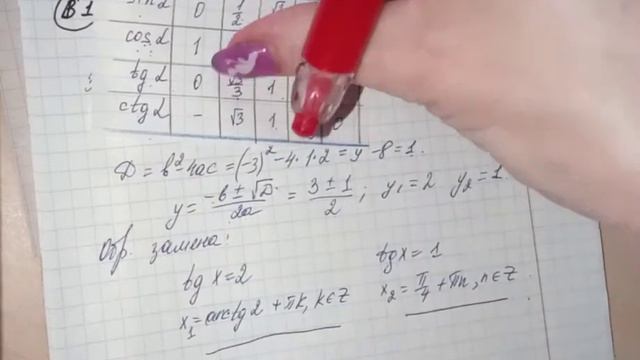 В 1
sin α 0 1/2
cos α 1
tg α 0 √3/3 1
ctg α - √3 1 0
D = b² - 4ac = (-3)² - 4·1·2 = 9 - 8 = 1.
y = -b ± √D / 2a = 3 ± 1 / 2 ; y₁ = 2 y₂ = 1.
Обр. замена:
tg x = 2 tg x = 1
x₁ = arctg 2 + πk, k ∈ Z x₂ = π/4 + πn, n ∈ Z